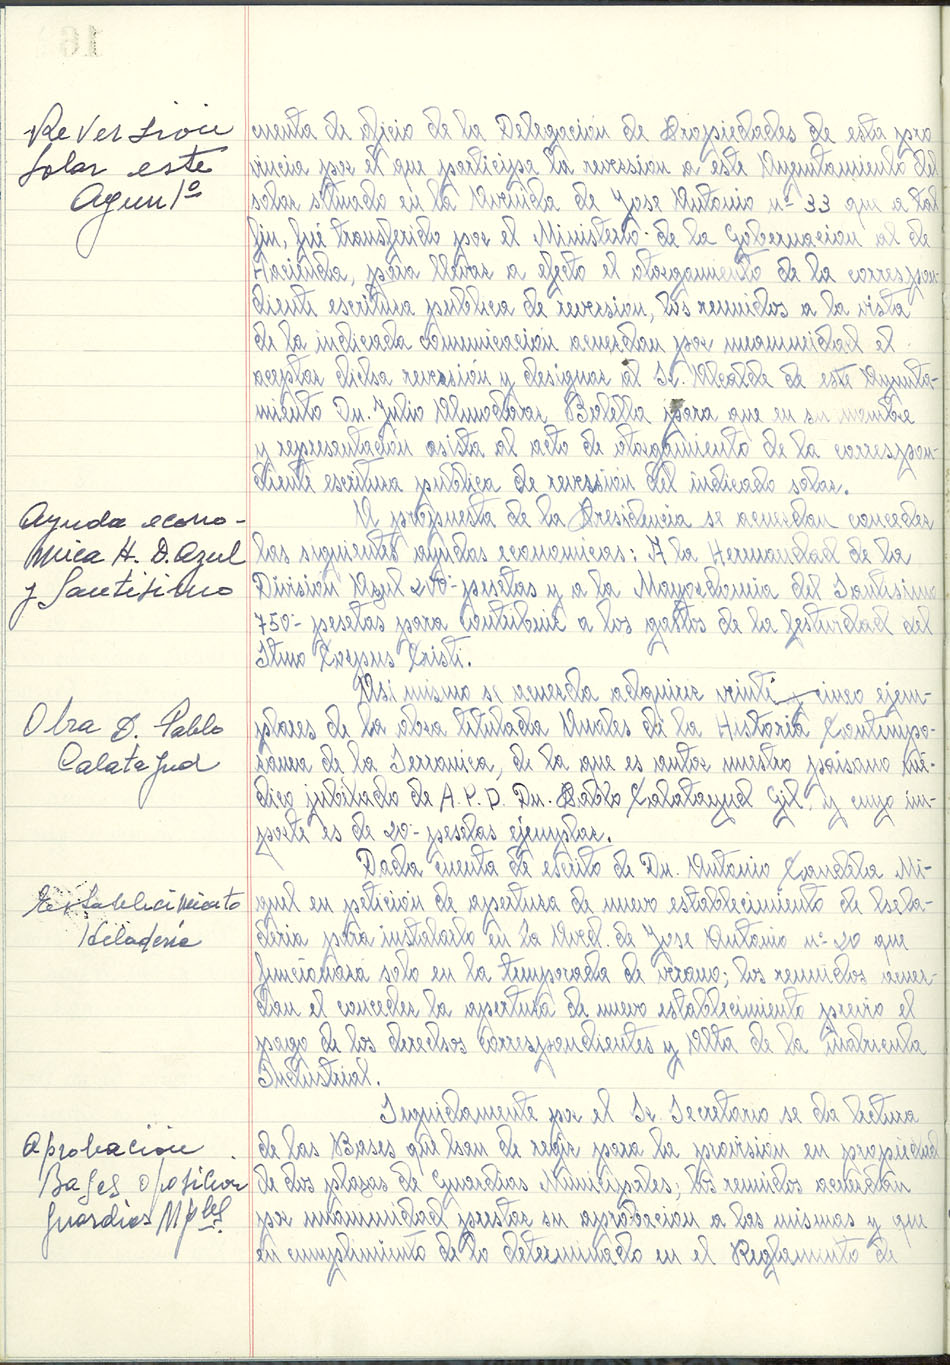 Reversion
Solar este
Ayuntº
cuenta de oficio de la Delegación de Propiedades de esta pro
vincia por el que participa la reversion a este Ayuntamiento del
solar situado en la Avenida de Jose Antonio nº 33 que a tal
fin, fué transferido por el Ministerio de la Gobernacion al de
Hacienda, para llevar a efecto el otorgamiento de la correspon-
diente escritura publica de reversion, los reunidos a la vista
de la indicada comunicacion acuerdan por unanimidad el
aceptar dicha reversión y designar al Sr. Alcalde de este Ayunta-
miento Dn. Julio Almodovar Botella para que en su nombre
y representación asista al acto de otorgamiento de la correspon-
diente escritura publica de reversión del indicado solar.
Ayuda econo-
mica H. D. Azul
y Santisimo
A propuesta de la Presidencia se acuerdan conceder
las siguientes ayudas economicas: A la Hermandad de la
División Azul 250- pesetas y a la Mayordomia del Santisimo
750- pesetas para contribuir a los gastos de la festividad del
Stmo Corpus Cristi.
Obra D. Pablo
Calatayud
Asi mismo se acuerda adquirir veinte y cinco ejem-
plares de la obra titulada Anales de la Historia Contempo-
ranea de la Serranica, de la que es autor nuestro paisano mé-
dico jubilado de A.P.D. Dn. Pablo Calatayud Gil, y cuyo im-
porte es de 20- pesetas ejemplar.
Establecimiento
Heladeria
Dada cuenta de escrito de Dn. Antonio Candela Mi-
gual en petición de apertura de nuevo establecimiento de hela-
deria para instalarlo en la Avd. de Jose Antonio nº 20 que
funcionará solo en la temporada de verano; los reunidos acuer-
dan el conceder la apertura de nuevo establecimiento previo el
pago de los derechos correspondientes y Alta de la Matricula
Industrial.
Aprobación
Bases oposicion
Guardias Mples.
Seguidamente por el Sr. Secretario se da lectura
de las Bases que han de regir para la provisión en propiedad
de dos plazas de Guardias Municipales; los reunidos acuerdan
por unanimidad prestar su aprobacion a las mismas y que
en cumplimiento de lo determinado en el Reglamento de